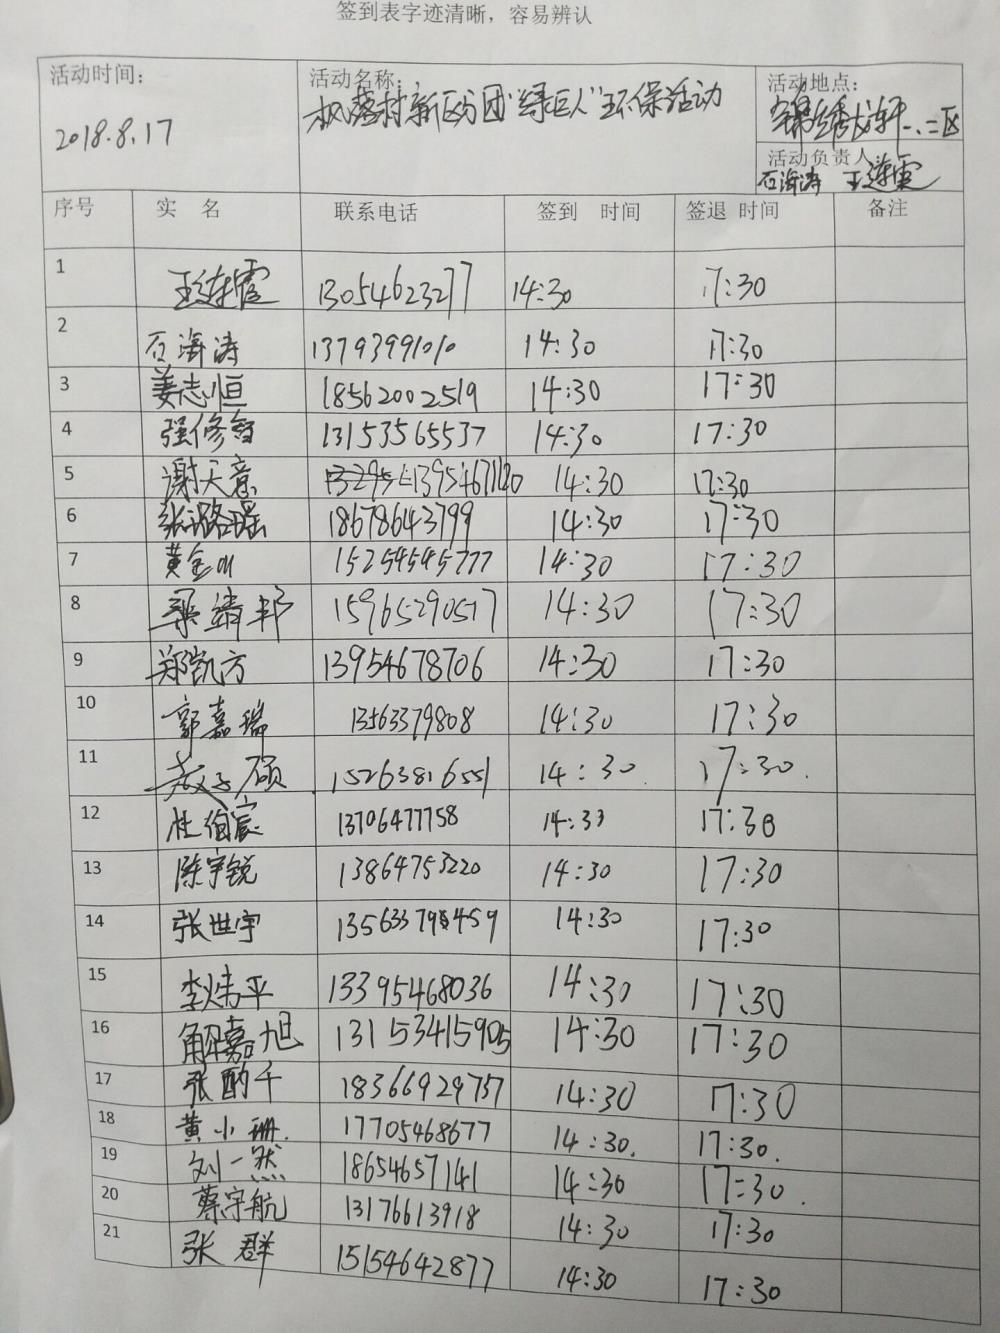 签到表字迹清晰，容易辨认
活动时间： 2018.8.17
活动名称： 枫落村新区分团“绿巨人”环保活动
活动地点： 锦绣龙轩一、二区
活动负责人 石海涛 王连霞
序号 实 名 联系电话 签到 时间 签退 时间 备注
1 王连霞 13054623277 14:30 17:30
2 石海涛 13793991010 14:30 17:30
3 姜志恒 18562002519 14:30 17:30
4 强修智 13153565537 14:30 17:30
5 谢天意 13954671120 14:30 17:30
6 张潞瑶 18678643799 14:30 17:30
7 黄金川 15254545777 14:30 17:30
8 梁靖邦 15965290517 14:30 17:30
9 郑凯方 13954678706 14:30 17:30
10 郭嘉瑞 13563379808 14:30 17:30
11 子硕 15263816551 14:30. 17:30.
12 杜伯宸 13706477758 14:30 17:30
13 陈宇锐 13864753220 14:30 17:30
14 张世宇 14:30 17:30
15 李炜平 13395468036 14:30 17:30
16 解嘉旭 13153415905 14:30 17:30
17 张酌千 18366929757 14:30 17:30
18 黄小珊. 17705468677 14:30. 17:30.
19 刘一然 18654657141 14:30 17:30.
20 蔡宇航 13176613918 14:30 17:30
21 张 群 15154642877 14:30 17:30